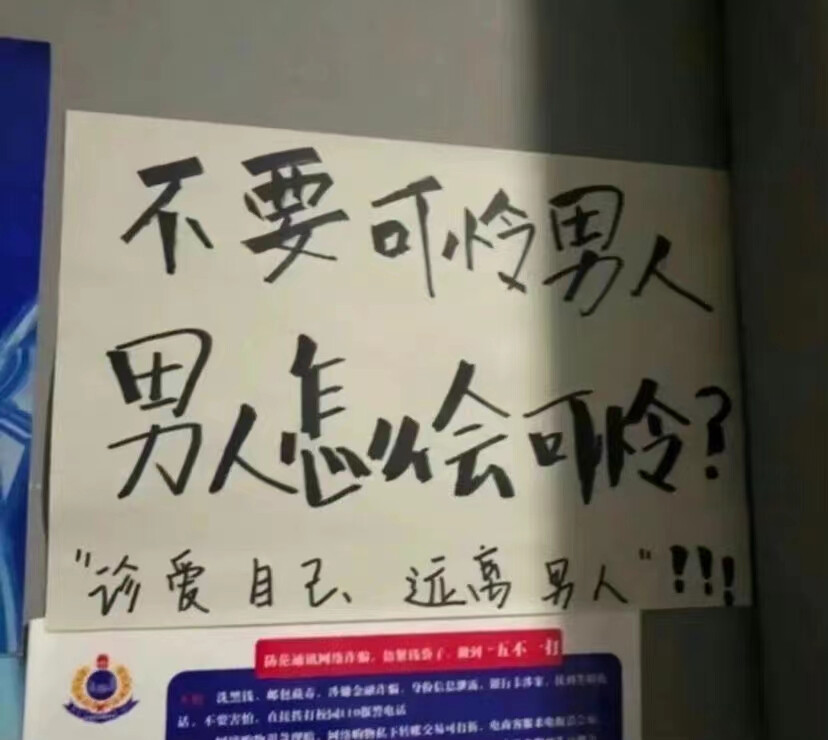 不要可怜男人
男人怎么会可怜?
"诊爱自己、远离男人"!!!
防范通讯网络诈骗,捂紧钱袋子,做到"五不一打
洗黑钱、邮包藏毒、涉嫌金融诈骗、身份信息泄露、银行卡涉案、
话,不要害怕,直接拨打校园110报警电话